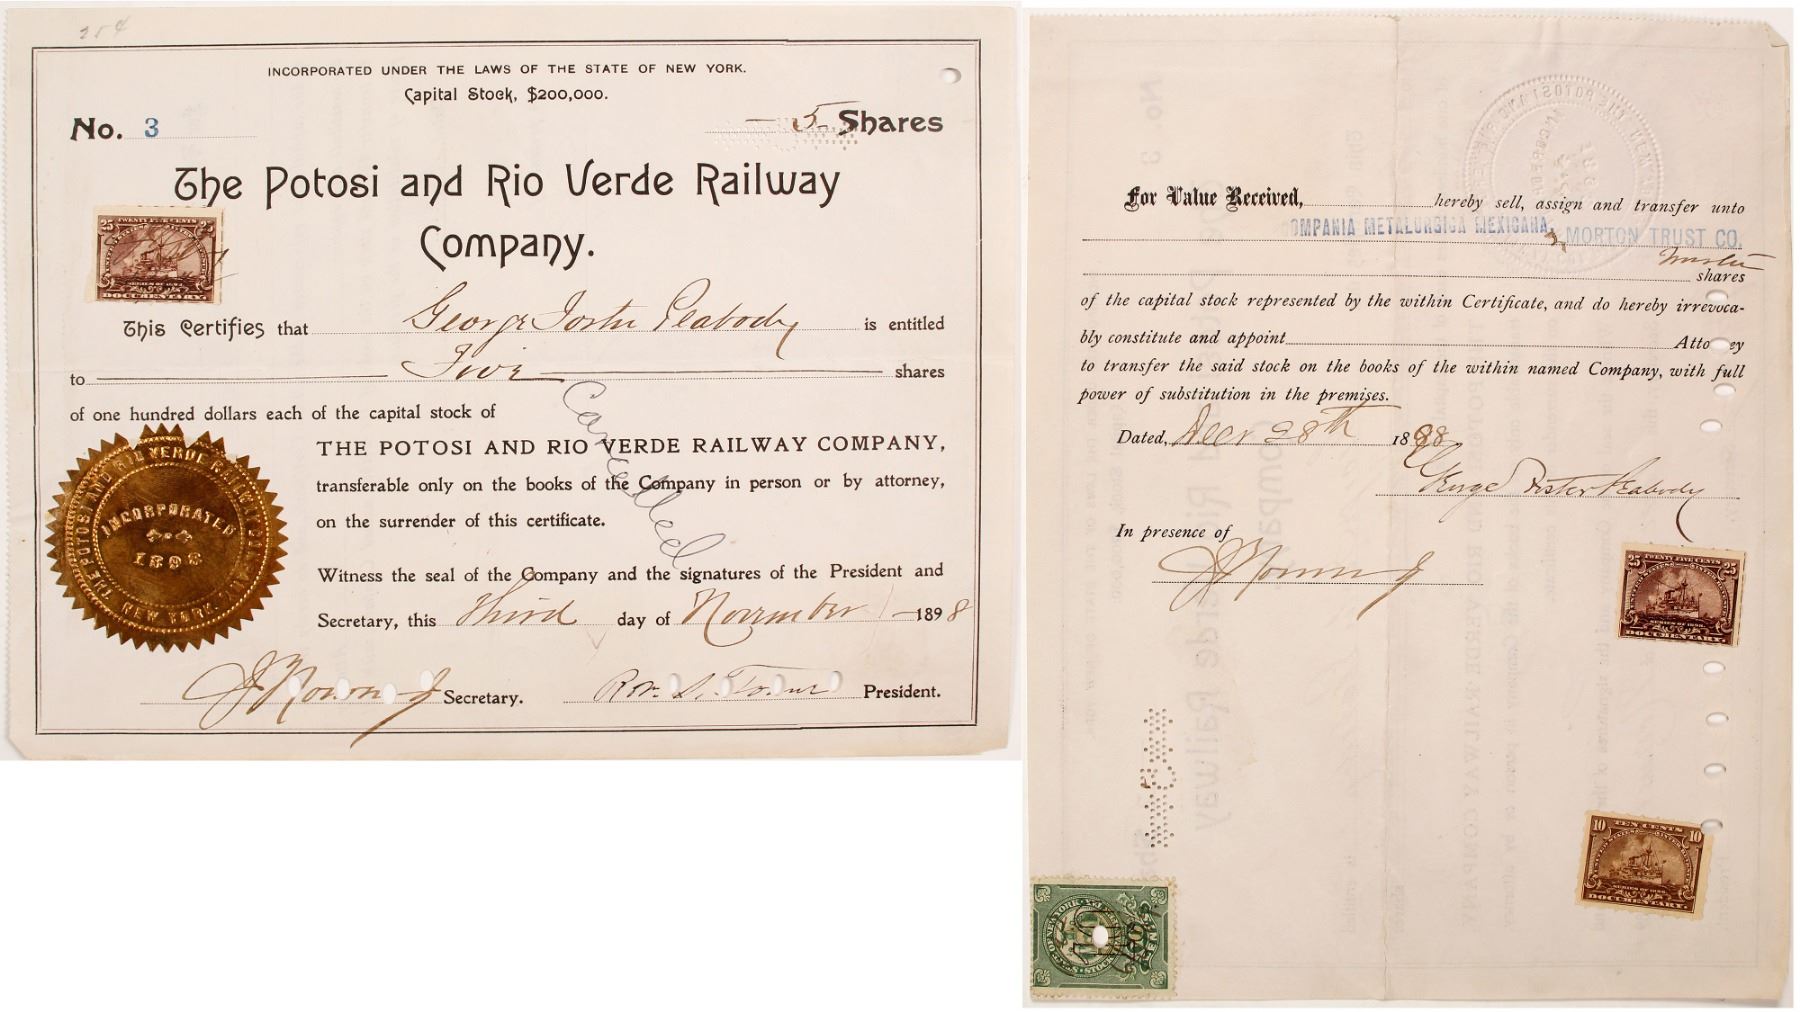 254
INCORPORATED UNDER THE LAWS OF THE STATE OF NEW YORK.
Capital Stock, $200,000.
No. 3 5 Shares
The Potosi and Rio Verde Railway
Company.
25 TWENTY FIVE CENTS 25
SERIES OF 1898
DOCUMENTARY.
This Certifies that George Foster Peabody is entitled
to Five shares
of one hundred dollars each of the capital stock of
THE POTOSI AND RIO VERDE RAILWAY COMPANY,
transferable only on the books of the Company in person or by attorney,
on the surrender of this certificate.
Cancelled
THE POTOSI AND RIO VERDE RAILWAY COMPANY
INCORPORATED
1898
NEW YORK
Witness the seal of the Company and the signatures of the President and
Secretary, this Third day of November 1898
Secretary. President.
For Value Received, hereby sell, assign and transfer unto
OMPANIA METALURGICA MEXICANA, MORTON TRUST CO.
shares
of the capital stock represented by the within Certificate, and do hereby irrevoca-
bly constitute and appoint Attorney
to transfer the said stock on the books of the within named Company, with full
power of substitution in the premises.
Dated, Decr 28th 1898
George Foster Peabody
In presence of
25 TWENTY FIVE CENTS 25
SERIES OF 1898.
DOCUMENTARY.
10 TEN CENTS 10
SERIES OF 1898.
DOCUMENTARY.